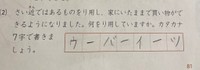 (2) さい近ではあるものをり用し、家にいたままで買い物がで
きるようになりました。何をり用していますか。カタカナ
7字で書きま
しょう。
ウーバーイーツ
81